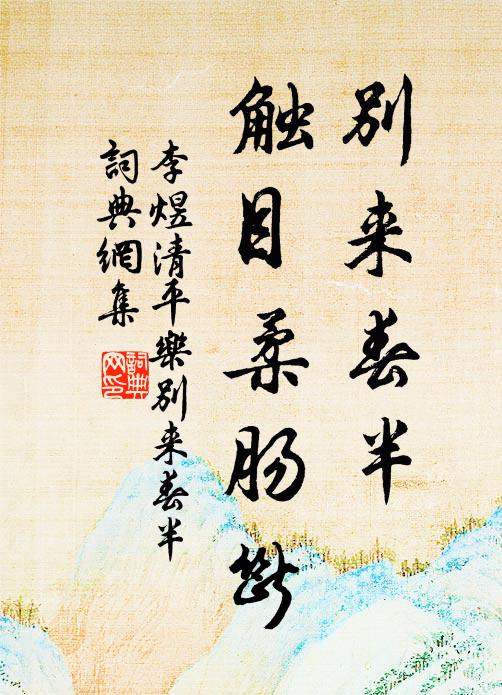 别来春半
触目柔肠断
李煜清平樂别来春半
詞典網集
詞典网印